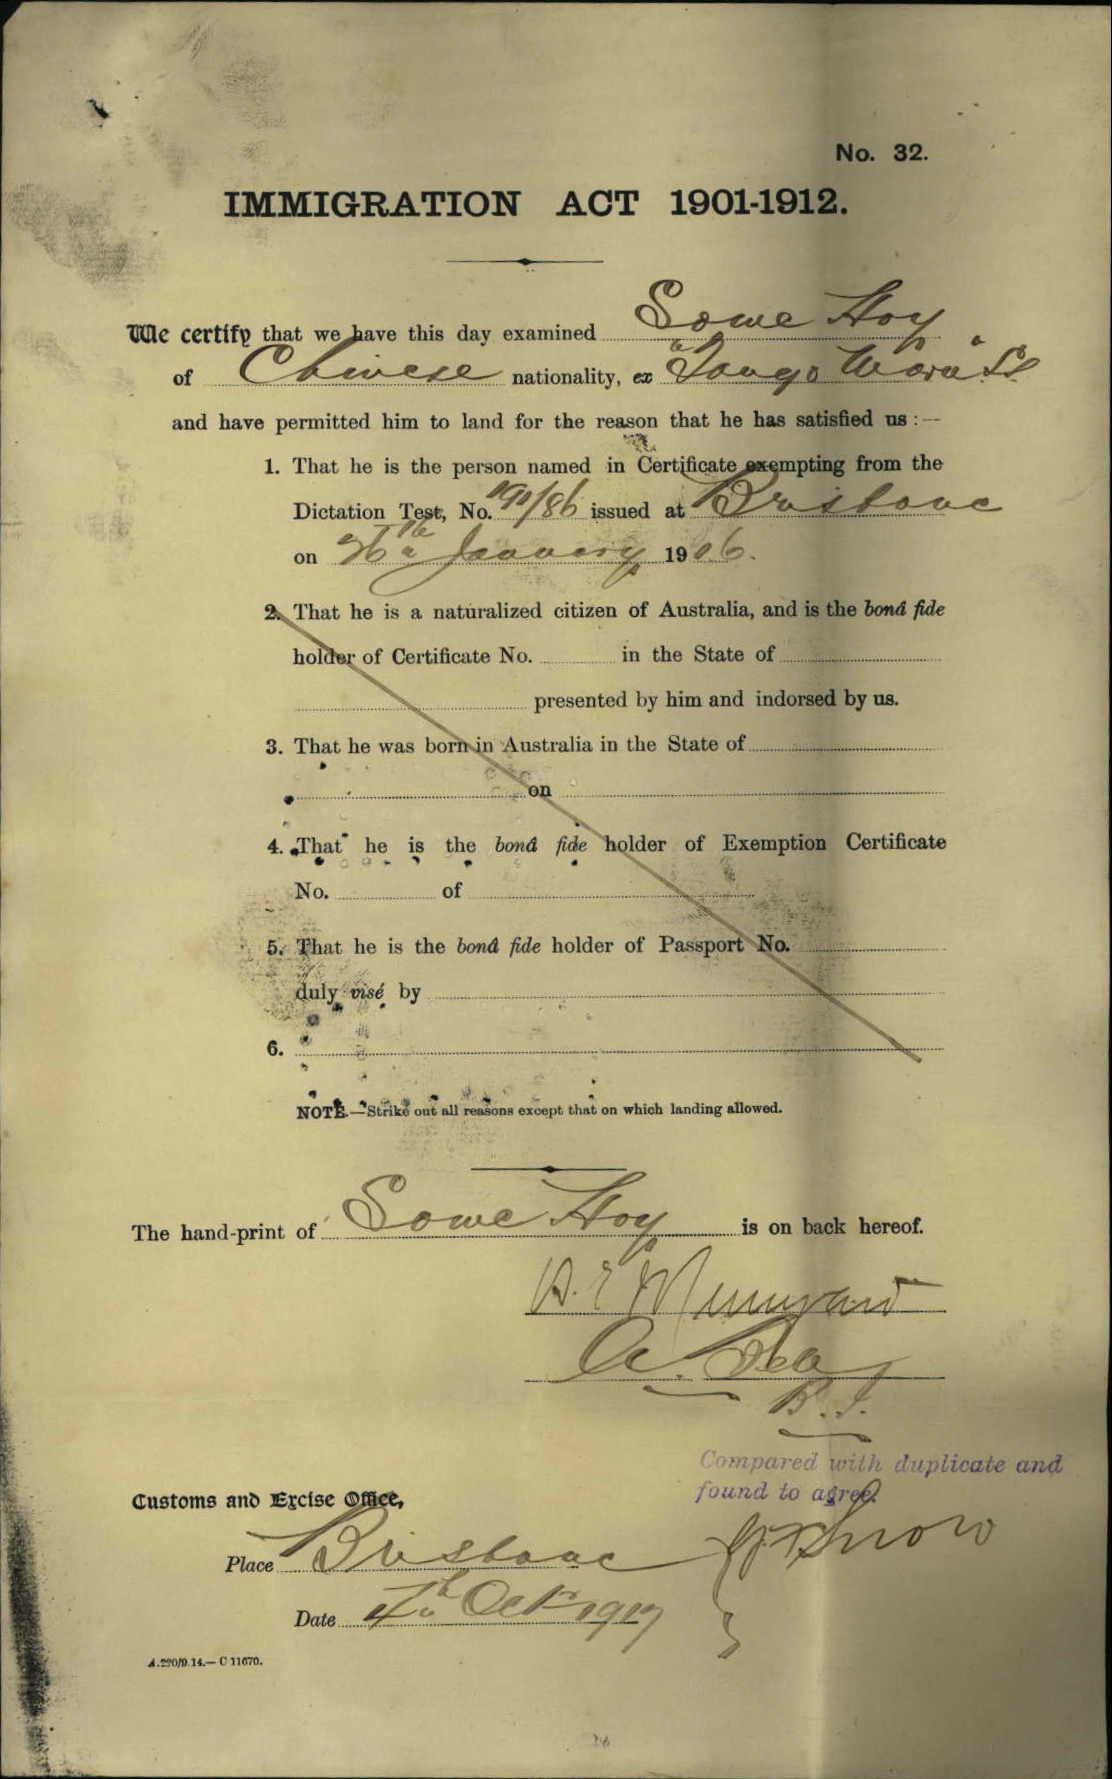 No. 32.
IMMIGRATION ACT 1901-1912.
We certify that we have this day examined Sowe Hoy
of Chinese nationality, ex "Tango Maru" SS
and have permitted him to land for the reason that he has satisfied us :—
1. That he is the person named in Certificate exempting from the
Dictation Test, No. /86 issued at Brisbane
on January 1906.
2. That he is a naturalized citizen of Australia, and is the bonâ fide
holder of Certificate No. in the State of
presented by him and indorsed by us.
3. That he was born in Australia in the State of
on
4. That he is the bonâ fide holder of Exemption Certificate
No. of
5. That he is the bonâ fide holder of Passport No.
duly visé by
6.
NOTE.—Strike out all reasons except that on which landing allowed.
The hand-print of Sowe Hoy is on back hereof.
B. I.
Compared with duplicate and
found to agree.
Customs and Excise Office,
Snow
Place Brisbane
Date 4th Oct 1917
A.220/9.14.—C 11670.